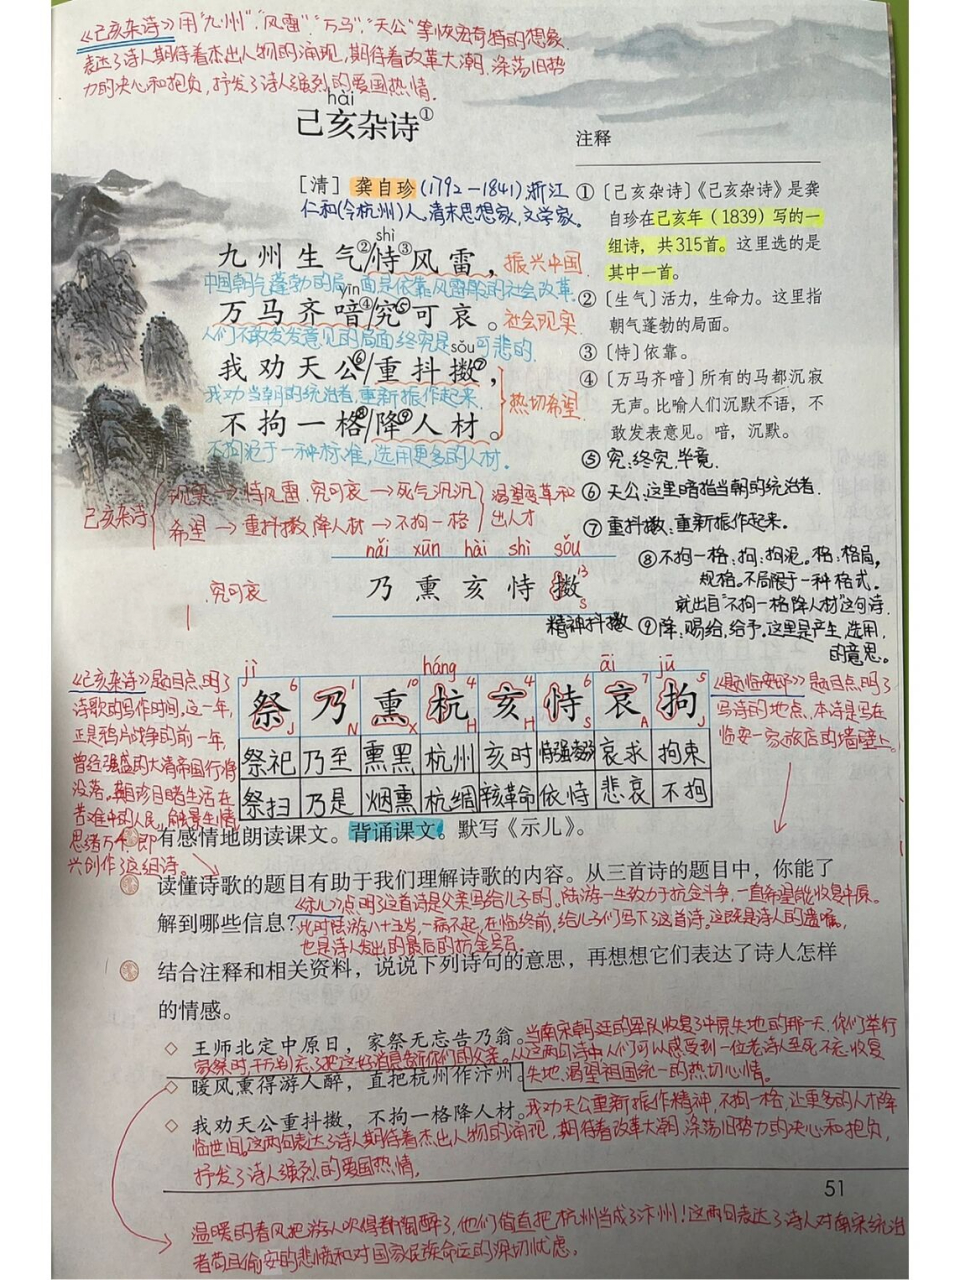 《己亥杂诗》用"九州"、"风雷"、"万马"、"天公"等恢宏奇特的想象,
表达了诗人期待着杰出人物的涌现,期待着改革大潮,涤荡旧势
力的决心和抱负,抒发了诗人强烈的爱国热情.
hài
己亥杂诗①
[清] 龚自珍(1792-1841)浙江
仁和(今杭州)人,清末思想家,文学家。
shì
九州生气②/恃③风雷,振兴中国
中国朝气蓬勃的局面是依靠风雷般的社会改革.
yīn
万马齐喑④/究⑤可哀。社会现实
人们不敢发发意见的局面终究是可悲的.
sǒu
我劝天公⑥/重抖擞⑦,
我劝当朝的统治者,重新振作起来
热切希望
不拘一格⑧/降⑨人材。
不拘泥于一种标准,选用更多的人材.
注释
①〔己亥杂诗〕《己亥杂诗》是龚
自珍在己亥年(1839)写的一
组诗,共315首。这里选的是
其中一首。
②〔生气〕活力,生命力。这里指
朝气蓬勃的局面。
③〔恃〕依靠。
④〔万马齐喑〕所有的马都沉寂
无声。比喻人们沉默不语,不
敢发表意见。喑,沉默。
⑤究:终究,毕竟.
⑥天公:这里暗指当朝的统治者.
⑦重抖擞:重新振作起来。
⑧不拘一格:拘:拘泥。格:格局,
规格。不局限于一种格式.
就出自"不拘一格降人材"这句诗.
⑨降:赐给,给予.这里是产生,选用,
的意思。
己亥杂诗
现实→恃风雷 究可哀→死气沉沉
希望→重抖擞 降人材→不拘一格
渴望改革和
出人才
nǎi xūn hài shì sǒu
乃 熏 亥 恃 擞
13
S
精神抖擞
究可哀
jì háng āi jū
祭 乃 熏 杭 亥 恃 哀 拘
祭祀 乃至 熏黑 杭州 亥时 恃强凌弱 哀求 拘束
祭扫 乃是 烟熏 杭绸 辛亥革命 依恃 悲哀 不拘
《己亥杂诗》题目点明了
诗歌的写作时间。这一年,
正是鸦片战争的前一年,
曾经强盛的大清帝国行将
没落。龚自珍目睹生活在
苦难中的人民,触景生情
思绪万千,即
兴创作了这组诗。
《题临安邸》题目点明了
写诗的地点,本诗是写在
临安一家旅店的墙壁上。
有感情地朗读课文。背诵课文。默写《示儿》。
读懂诗歌的题目有助于我们理解诗歌的内容。从三首诗的题目中,你能了
解到哪些信息?
《示儿》点明了这首诗是父亲写给儿子的。陆游一生致力于抗金斗争,一直希望能收复中原。
此时陆游八十五岁,一病不起,在临终前,给儿子们写下了这首诗。这既是诗人的遗嘱,
也是诗人发出的最后的抗金号召.
结合注释和相关资料,说说下列诗句的意思,再想想它们表达了诗人怎样
的情感。
◇ 王师北定中原日,家祭无忘告乃翁。
当南宋朝廷的军队收复了中原失地的那一天,你们举行
家祭时,千万别忘了把这好消息告诉你们的父亲。从这两句诗中人们可以感受到一位老诗人至死不忘收复
失地、渴望祖国统一的热切心情。
◇ 暖风熏得游人醉,直把杭州作汴州。
◇ 我劝天公重抖擞,不拘一格降人材。
我劝天公重新振作精神,不拘一格,让更多的人才降
临世间。这两句表达了诗人期待着杰出人物的涌现,期待着改革大潮,涤荡旧势力的决心和抱负,
抒发了诗人强烈的爱国热情.
51
温暖的春风把游人吹得都陶醉了,他们简直把杭州当成了汴州!这两句表达了诗人对南宋统治
者苟且偷安的悲愤和对国家民族命运的深切忧虑。